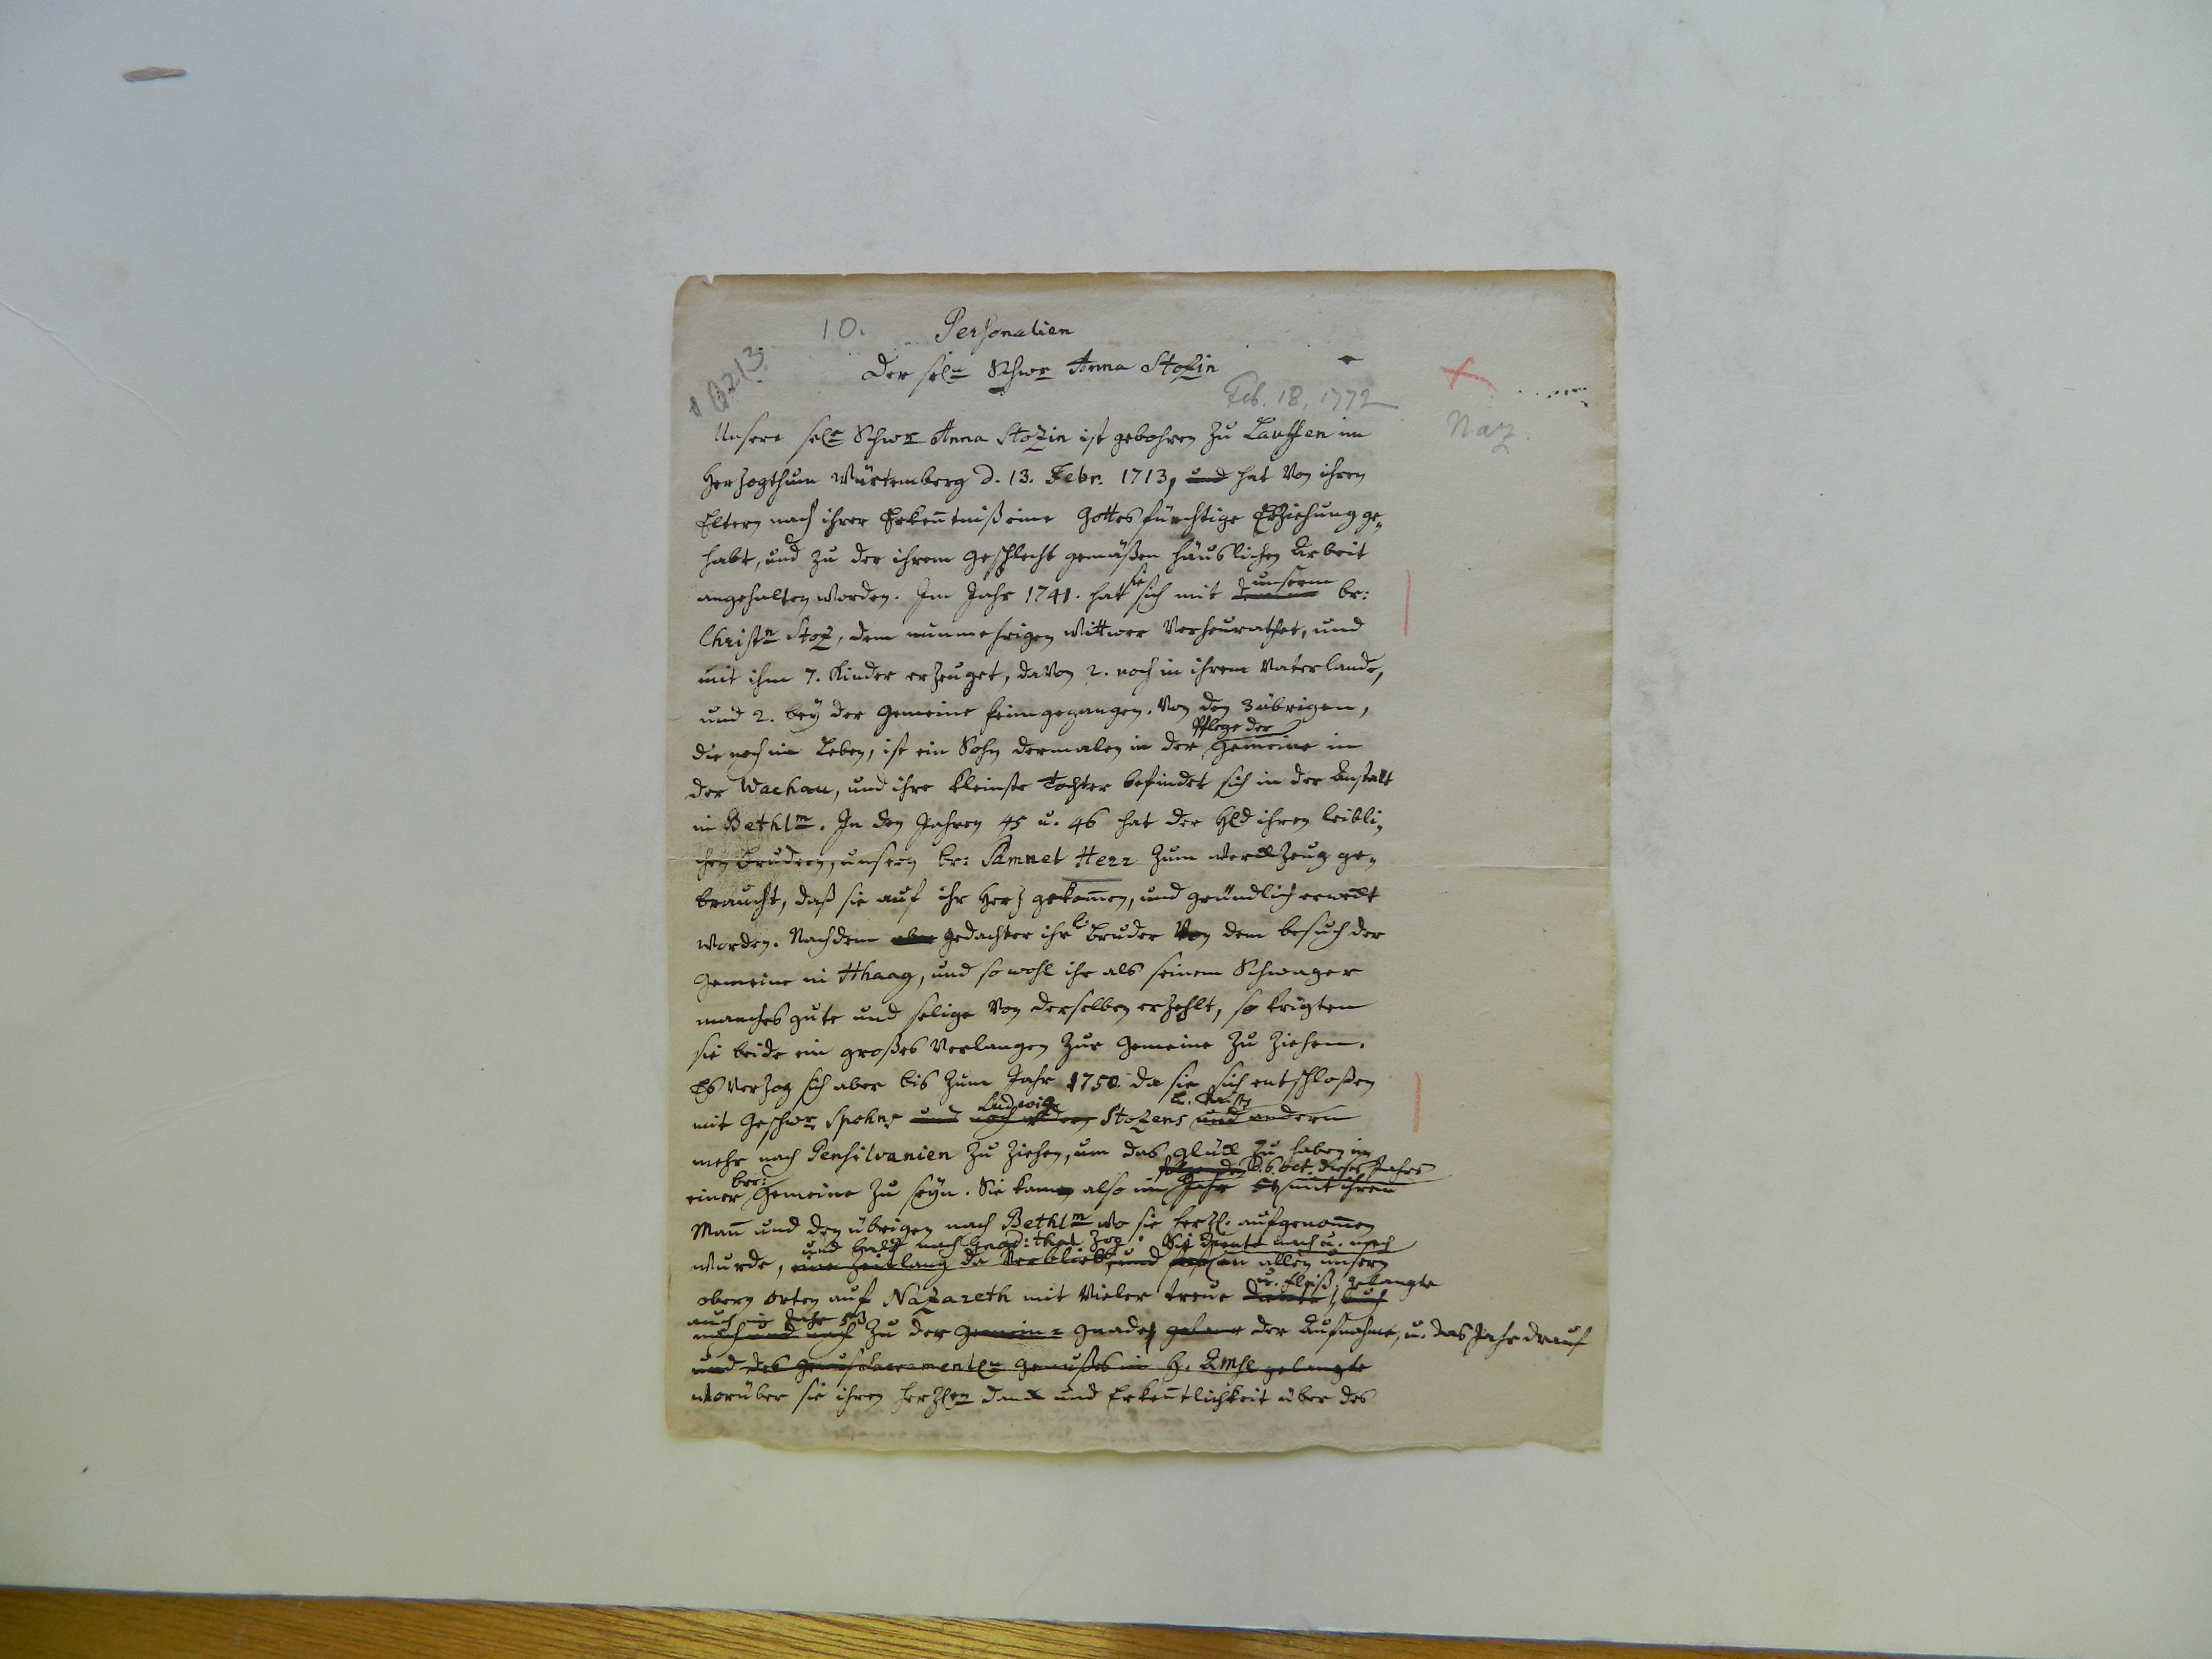 10. Personalien
der seln Schwr Anna Stozin
* B213
Feb. 18, 1772
Naz.
Unsere sele Schwr Anna Stozin ist gebohren zu Lauffen im
Herzogthum Würtemberg d. 13. Febr. 1713, und hat von ihren
Eltern nach ihrer Erkentniß eine Gottesfürchtige Erziehung ge„
habt, und zu der ihrem Geschlecht gemäßen häuslichen Arbeit
angehalten worden. Im Jahr 1741. hat sie sich mit unserm br:
Christn Stoz, dem nunmehrigen Wittwer verheurathet, und
mit ihm 7. Kinder erzeuget, davon 2. noch in ihrem Vaterlande,
und 2. bey der Gemeine heimgegangen. Von den 3 übrigen,
die noch im Leben, ist ein Sohn dermalen in der Pflege der Gemeine in
der Wachau, und ihre kleinste Tochter befindet sich in der Anstalt
in Bethlm. In den Jahren 45 u. 46 hat der Hld ihren leibli„
chen Brudern, unsern br: Samuel Herr zum Werckzeug ge„
braucht, daß sie auf ihr Herz gekommen, und gründlich erweckt
worden. Nachdem aber gedachter ihr l. Bruder von dem besuch der
Gemeine in Hhaag, und so wohl ihr als seinem Schwager
manches gute und selige von derselben erzehlt, so krigten
sie beide ein großes Verlangen zur Gemeine zu ziehen.
Es verzog sich aber bis zum Jahr 1750. da sie sich entschloßen
mit Geschwr Spohns und Ludwig Stozens und andern
mehr nach Pensilvanien zu ziehen, um das glück zu haben in
einer br: Gemeine zu seyn. Sie kamen also im Jahr d. 6. Oct. dieses Jahrs mit ihrem
Mann und den übrigen nach Bethlm wo sie herzl. aufgenommen
wurde, und bald nach Gnad:thal zog. Sie diente nach u. nach
eine Zeitlang da verblieb, und an allen unsern
obern Orten auf Nazareth mit vieler treue u. fleiß, gelangte
auch im Jahr 53
nach und nach zu der Gemein= Gnade der Aufnahme, u. das Jahr drauf
und des Sacramentln Genußes im H. Amhl gelangte
worüber sie ihren herzlen danck und Erkentlichkeit über das